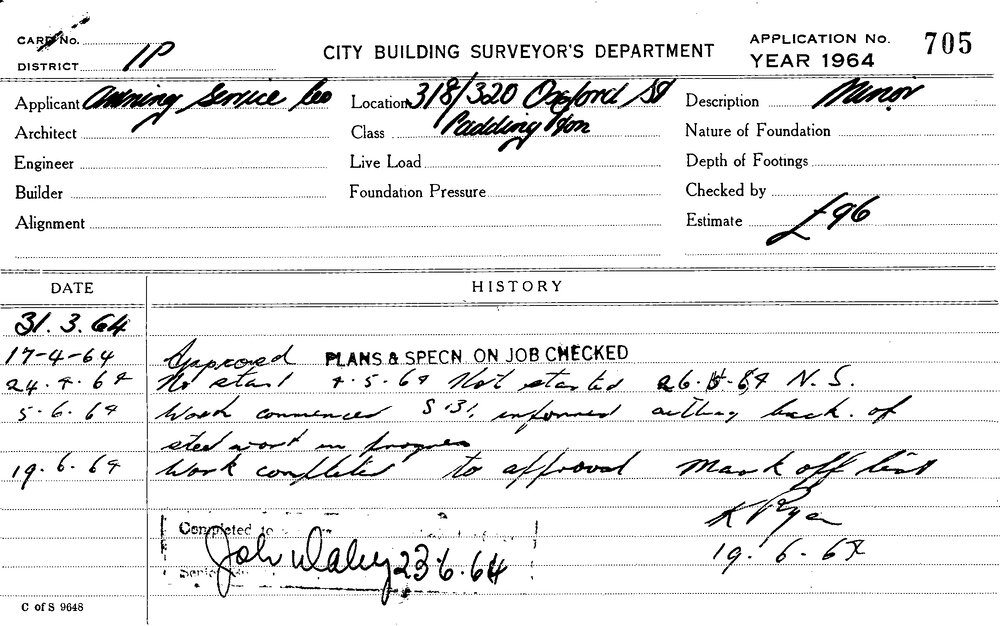 CARD No.
DISTRICT 1P
CITY BUILDING SURVEYOR'S DEPARTMENT
APPLICATION No. 705
YEAR 1964
Applicant Awning Service Co
Location 318/320 Oxford St
Description Minor
Architect
Class Paddington
Nature of Foundation
Engineer
Live Load
Depth of Footings
Builder
Foundation Pressure
Checked by
Alignment
Estimate £96
DATE HISTORY
31.3.64
17-4-64 Approved PLANS & SPECN ON JOB CHECKED
24.4.64 No start 4.5.64 Not started 26.5.64 N.S.
5.6.64 Work commenced informed cutting back of
steel work in progress
19.6.64 Work completed to approval Mark off list
K Ryan
19.6.64
Completed to
John Daley 23.6.64
C of S 9648